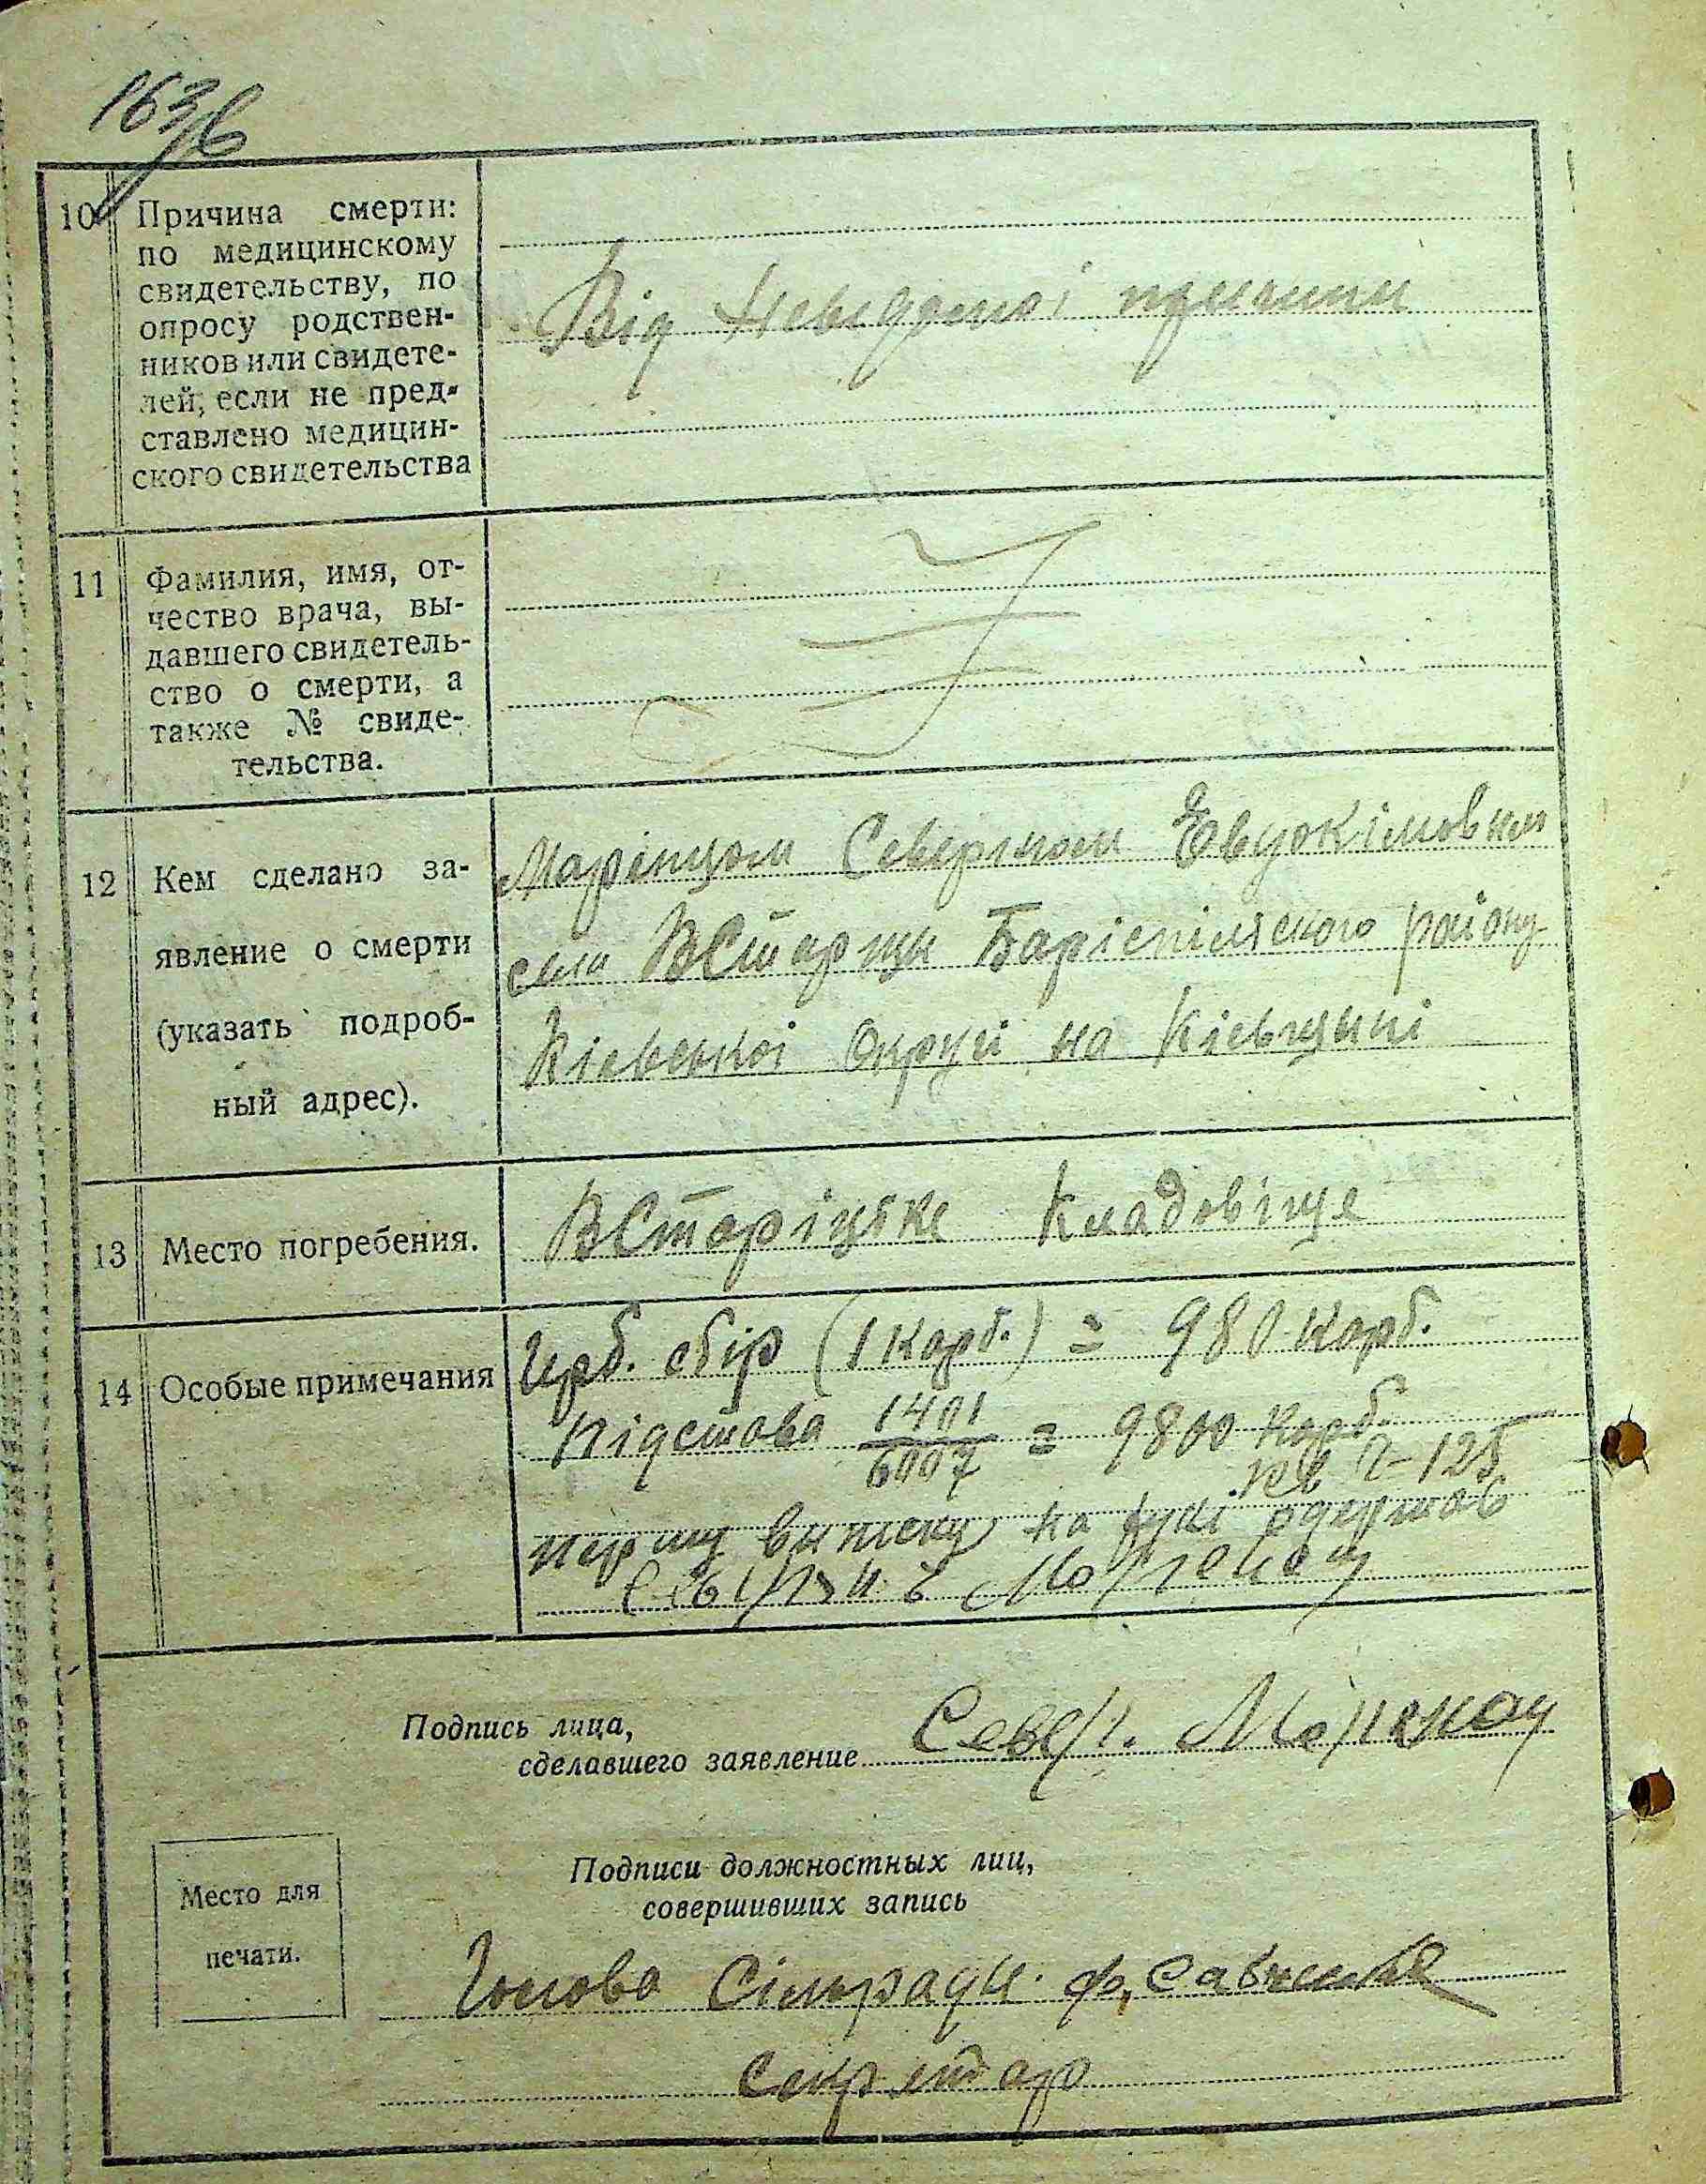 163
10 Причина смерти:
по медицинскому
свидетельству, по
опросу родствен-
ников или свидете-
лей, если не пред-
ставлено медицин-
ского свидетельства
Від Невідомоі причини
11 Фамилия, имя, от-
чество врача, вы-
давшего свидетель-
ство о смерти, а
также № свиде-
тельства.
12 Кем сделано за-
явление о смерти
(указать подроб-
ный адрес).
Северином Евдокімовим
села ВСтариця Баріспільского району
Кіевськоі Округи на Кіевщині
13 Место погребения.
ВСтаріцьке Кладовіще
14 Особые примечания
збір (1 карб.) = 980 карб.
Підстава 1401/6007 = 9800 карб.
кв 2-125
першу виписку на руки одержав
Подпись лица,
сделавшего заявление Север.
Место для
печати.
Подписи должностных лиц,
совершивших запись
Голова Сільради
Секретар